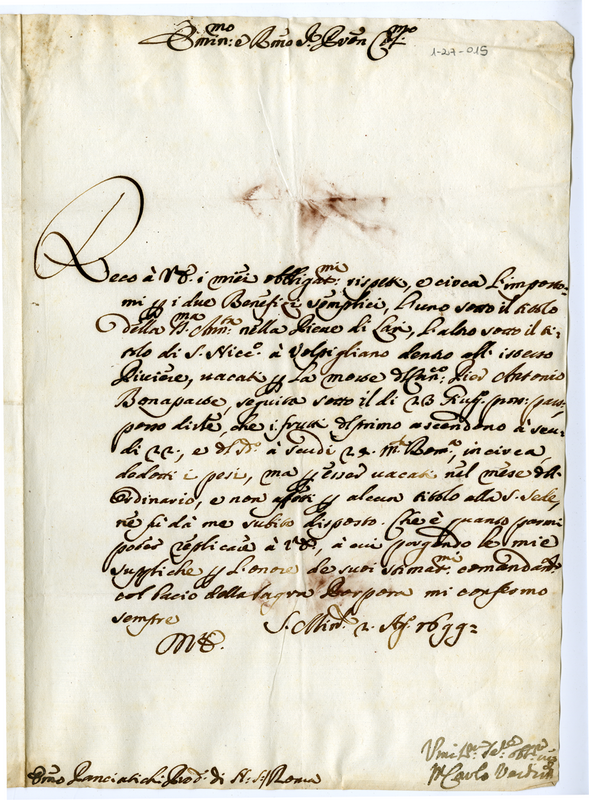 Emin:mo e Rmo Sr. Pron Colmo
1-27-015
Reco à V.E. i miei obbligat:mi rispetti, e circa l'impostomi
mi p i due Benefizi semplici, l'uno sotto il titolo
della SS.ma Ann:ta nella Pieve di Lari, l'altro sotto il ti-
tolo di S. Nicc:o à Volpigliano dentro all'istesso
Piviere, vacati p la morte del Pier Antonio
Bonaparte, seguita sotto il di 23
porto dirle, che i frutti del primo ascendono à scu-
di 22., e del à scudi 22. Rom:, in circa
dedotti i pesi, ma p esser vacati nel mese dell'
Ordinario, e non affetti p alcun titolo alla S. Sede,
ne fù da me subito disposto. Che è quanto parmi
poter replicare à V.E., à cui porgendo le mie
suppliche p l'onore de suoi stimat:mi comandam:ti
col bacio della sagra Porpora mi confermo
sempre S. Min:to 2. Ag: 1699:
V.E.
Emo Panciatichi Prod: di N. S. Roma
Vmil:mo
Carlo